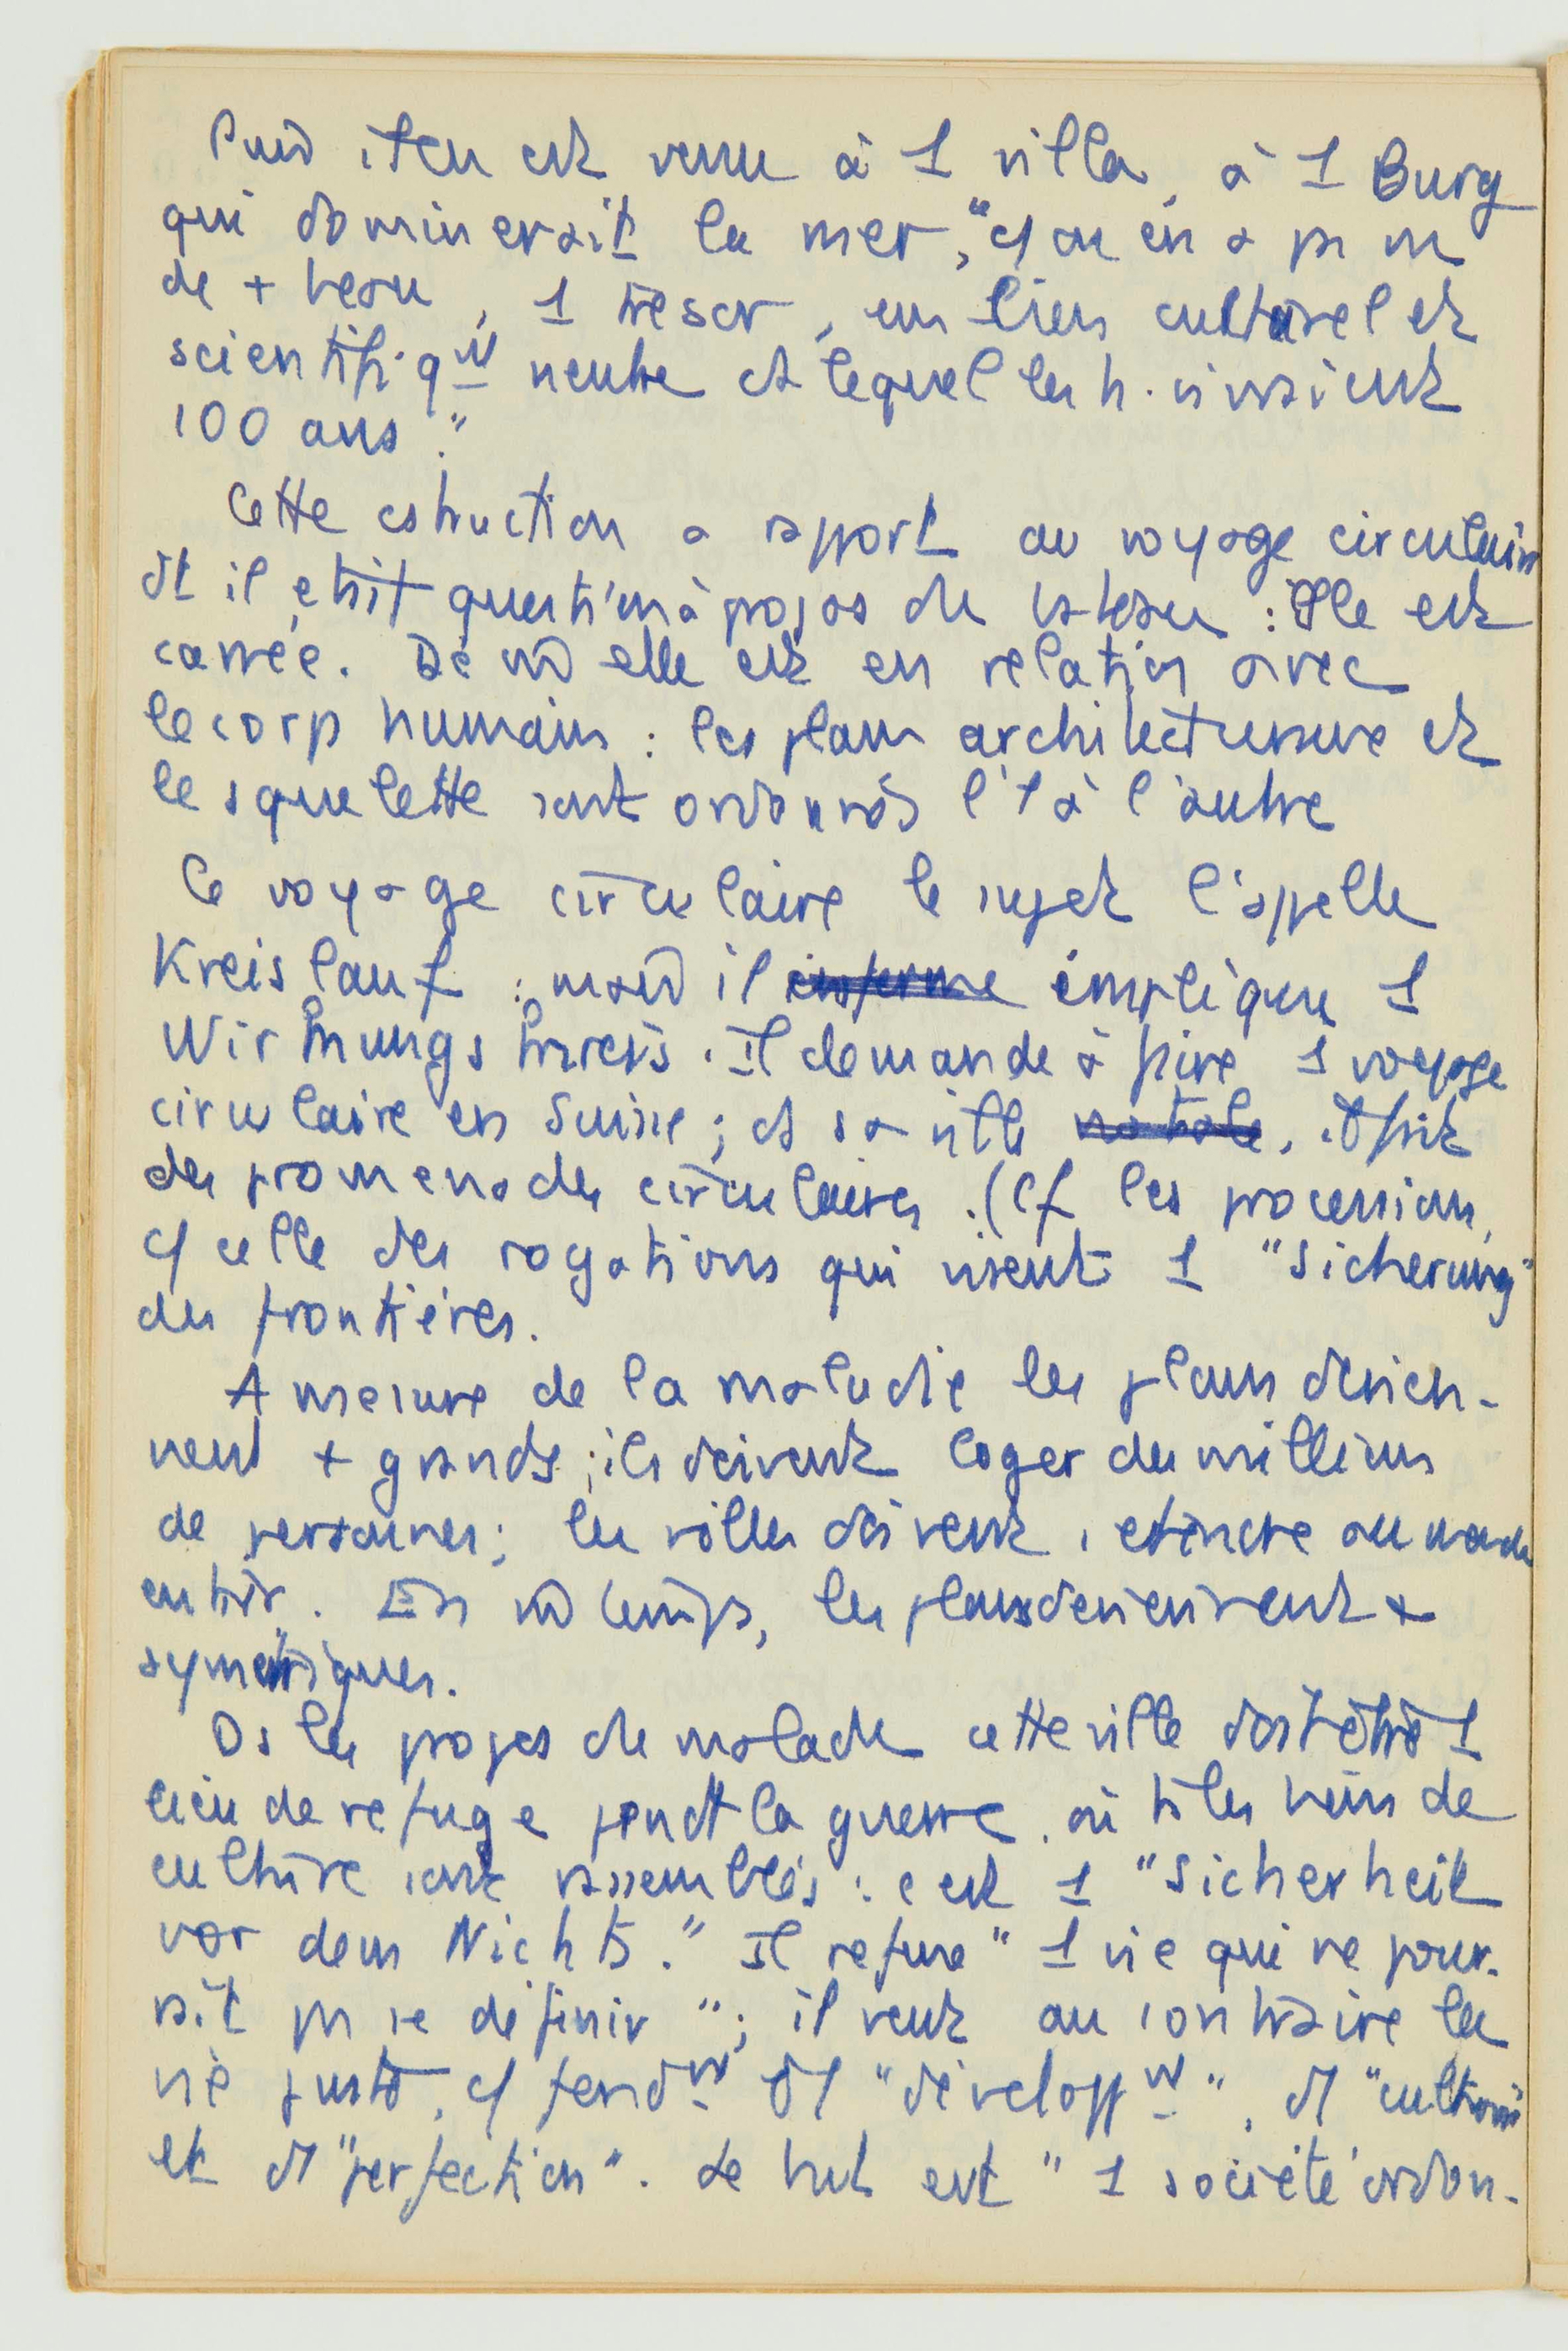 Puis il en est venu à 1 villa, à 1 Burg
qui dominerait la mer, "
de + beau, 1 trésor, un lieu culturel et
scientifiqut neutre ds lequel les h. vivraient
100 ans."
Cette cstruction a rapport au voyage circulaire
dt il était question à propos du bateau : Elle est
carrée. De m elle est en relation avec
le corp humain : les plans architecturaux et
le squelette sont ordonnés l'1 à l'autre
Ce voyage circulaire le sujet l'appelle
Kreislauf : mais il implique 1
Wirkungskreis. Il demande à faire 1 voyage
circulaire en Suisse ; ds sa ville, il fait
des promenades circulaires. (Cf les processions,
cf celle des rogations qui visent 1 "Sicherung"
des frontières.
A mesure de la maladie les plans devien-
nent + grands ; ils doivent loger des millions
de personnes ; les villes doivent s'étendre au monde
entier. En m temps, les plans deviennent +
symétriques.
Ds les propos du malade cette ville doit être 1
lieu de refuge pendt la guerre, où ts les biens de
culture sont rassemblés : c'est 1 "Sicherheit
vor dem Nichts." Il refuse "1 vie qui ne pour-
rait pas se définir" ; il veut au contraire la
vie juste, cf fondmt d'1 "développmt", d'1 "culture"
et d'1 "perfection". Le but est "1 société ordon-